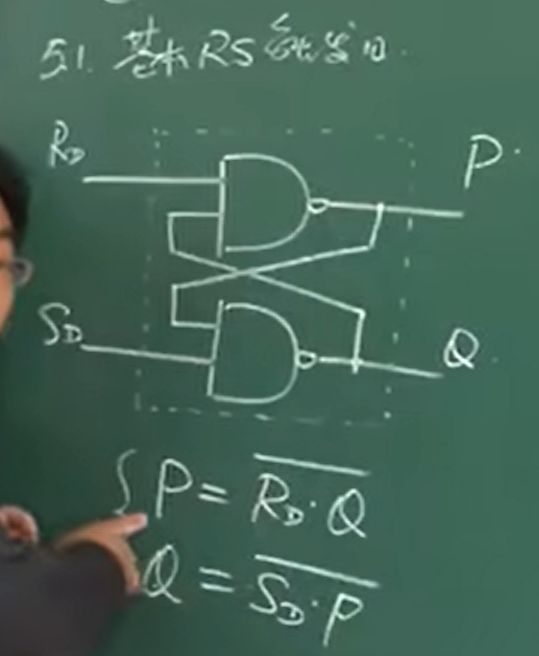 5.1. 基本RS触发器
R_D
P
S_D
Q
{ P = \overline{R_D · Q}
Q = \overline{S_D · P}